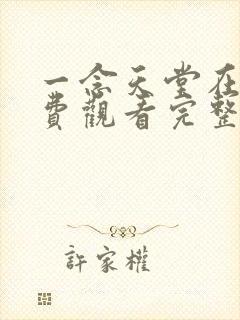 一念天堂在
費觀看完整
許家權